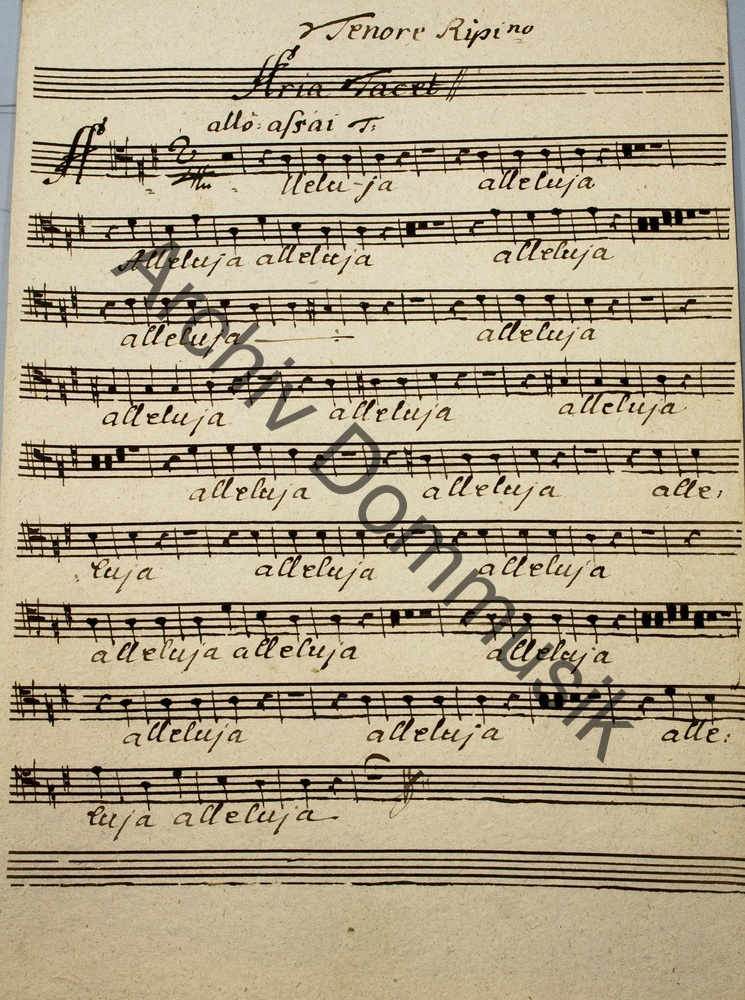 Tenore Ripino
Aria Tacet
allo: assai T:
Alleluja alleluja
Alleluja alleluja alleluja
alleluja alleluja
alleluja alleluja alleluja
alleluja alleluja alle:
luja alleluja alleluja
alleluja alleluja alleluja
alleluja alleluja alle:
luja alleluja
Archiv Dommusik